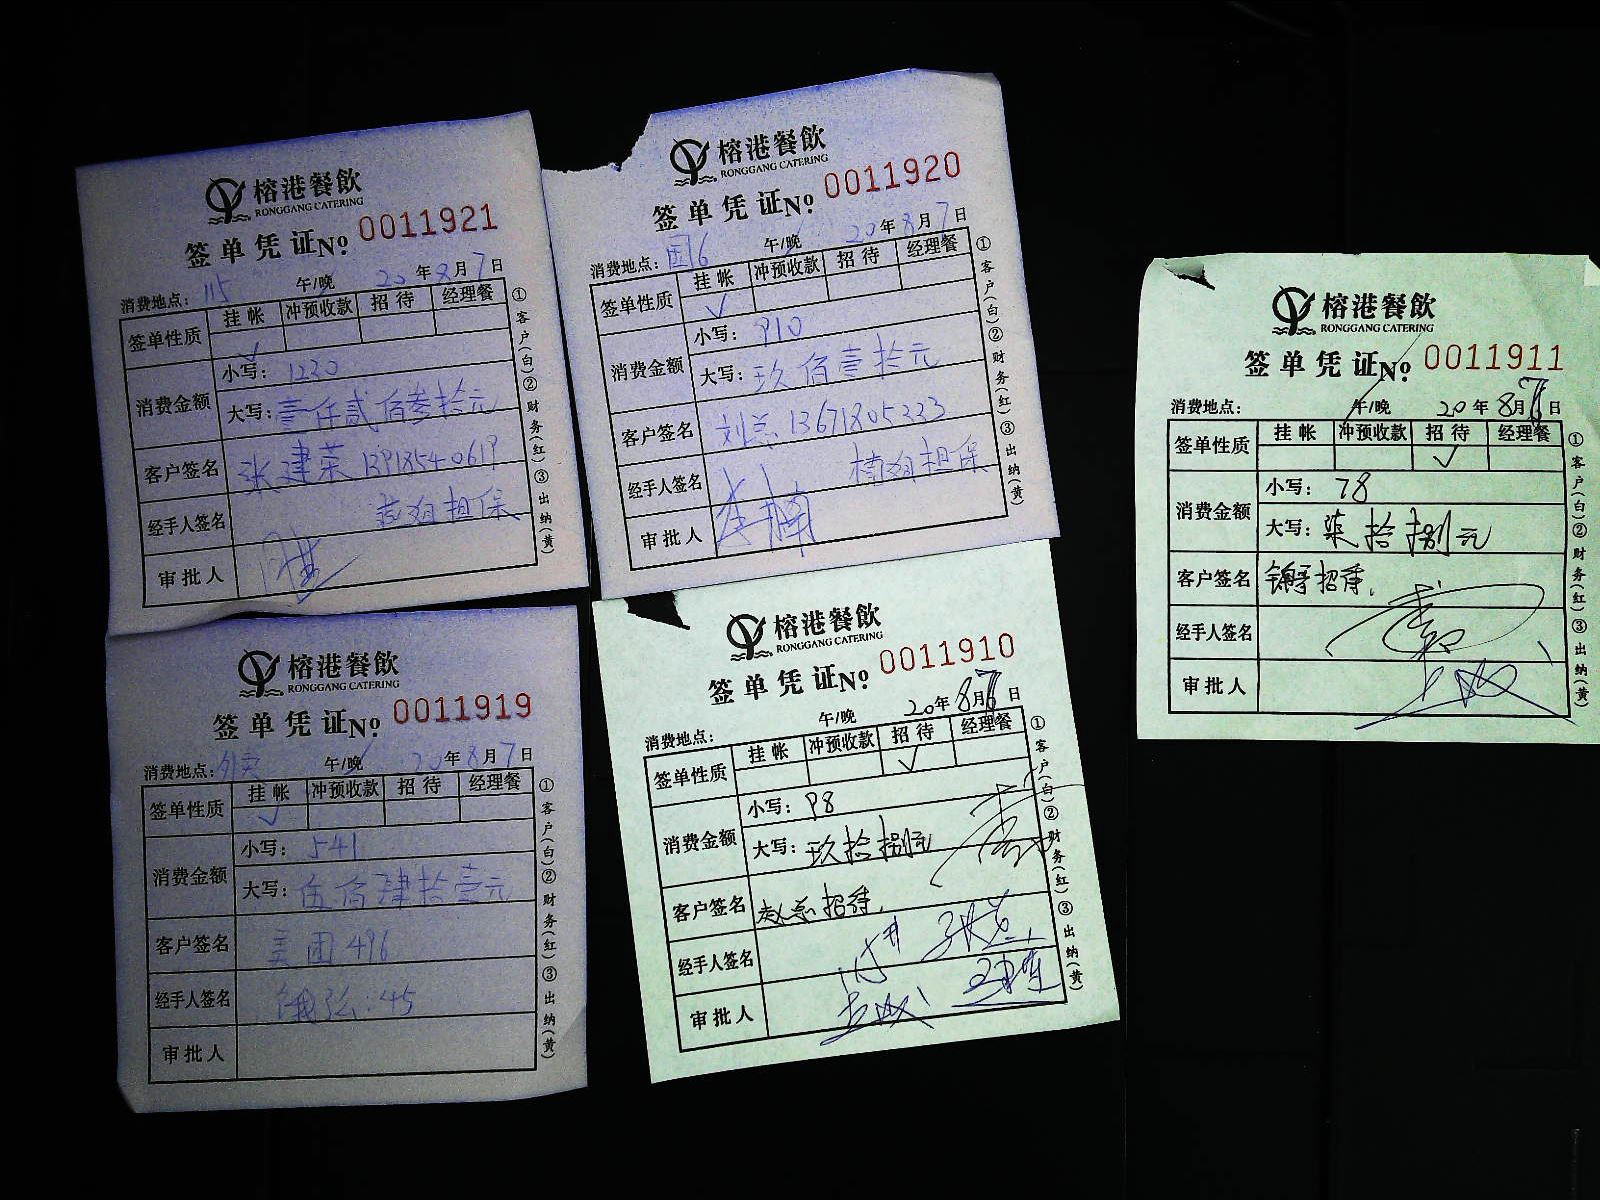 榕港餐飲
RONGGANG CATERING
签单凭证No. 0011921
消费地点: 115 午/晚 20年8月7日
签单性质 挂帐 冲预收款 招待 经理餐
✓
消费金额 小写: 1230
大写: 壹仟贰佰叁拾元
客户签名 张建荣 13918540619
经手人签名 担保
审批人
①客户(白)②财务(红)③出纳(黄)
榕港餐飲
RONGGANG CATERING
签单凭证No. 0011920
消费地点: 国6 午/晚 20年8月7日
签单性质 挂帐 冲预收款 招待 经理餐
✓
消费金额 小写: 910
大写: 玖佰壹拾元
客户签名 刘总 13671805223
经手人签名 担保
审批人 李楠
①客户(白)②财务(红)③出纳(黄)
榕港餐飲
RONGGANG CATERING
签单凭证No. 0011919
消费地点: 外卖 午/晚 20年8月7日
签单性质 挂帐 冲预收款 招待 经理餐
✓
消费金额 小写: 541
大写: 伍佰肆拾壹元
客户签名 美团 496
经手人签名 饿了么: 45
审批人
①客户(白)②财务(红)③出纳(黄)
榕港餐飲
RONGGANG CATERING
签单凭证No. 0011910
消费地点: 午/晚 20年8月7日
签单性质 挂帐 冲预收款 招待 经理餐
✓
消费金额 小写: 98
大写: 玖拾捌元
客户签名 赵总招待.
经手人签名
审批人
①客户(白)②财务(红)③出纳(黄)
榕港餐飲
RONGGANG CATERING
签单凭证No. 0011911
消费地点: 午/晚 20年8月7日
签单性质 挂帐 冲预收款 招待 经理餐
✓
消费金额 小写: 78
大写: 柒拾捌元
客户签名 招待.
经手人签名
审批人
①客户(白)②财务(红)③出纳(黄)